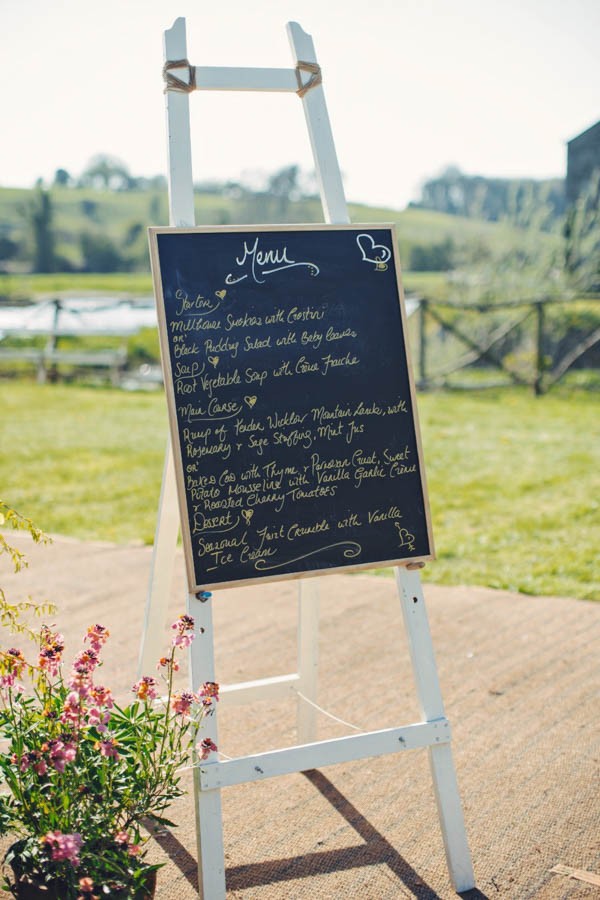 Menu
Starter
Millhouse Smokies with Crostini
or
Black Pudding Salad with Baby Leaves
Soup
Root Vegetable Soup with Crème Fraiche
Main Course
Rump of Tender Wicklow Mountain Lamb, with
Rosemary & Sage Stuffing, Mint Jus
or
Baked Cod with Thyme & Parmesan Crust, Sweet
Potato Mousseline with Vanilla Garlic Crème
& Roasted Cherry Tomatoes
Dessert
Seasonal Fruit Crumble with Vanilla
Ice Cream